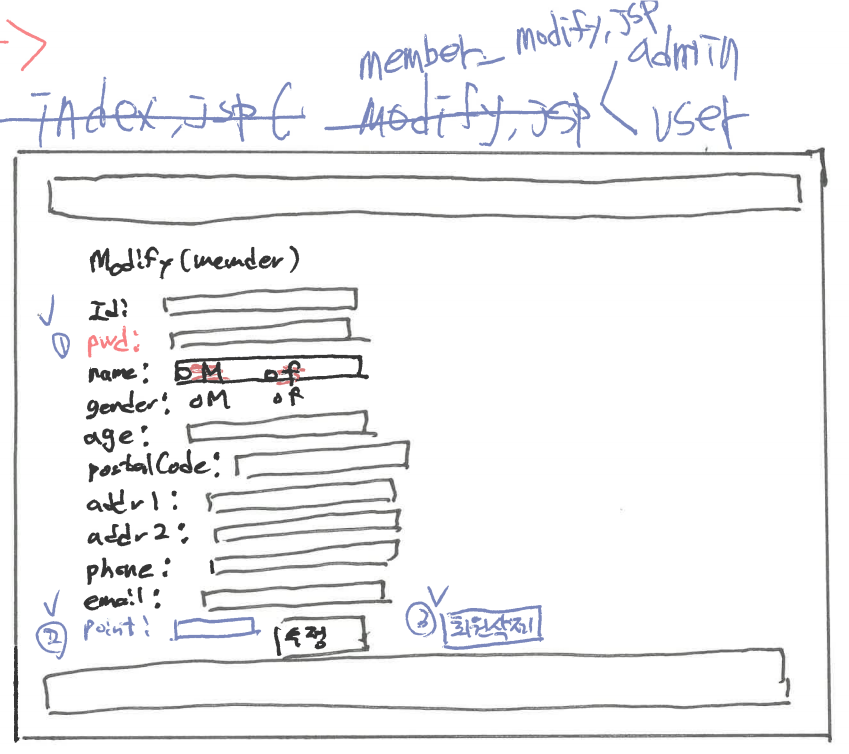 member_ modify,jsp
admin
index,jsp ( modify,jsp < user
Modify (memder)
✓ Id:
① pwd:
name: o M o f
gender: o M o f
age:
postalCode:
addr1:
addr2:
phone:
✓ email:
② point: 수정 ✓ ③ 회원삭제